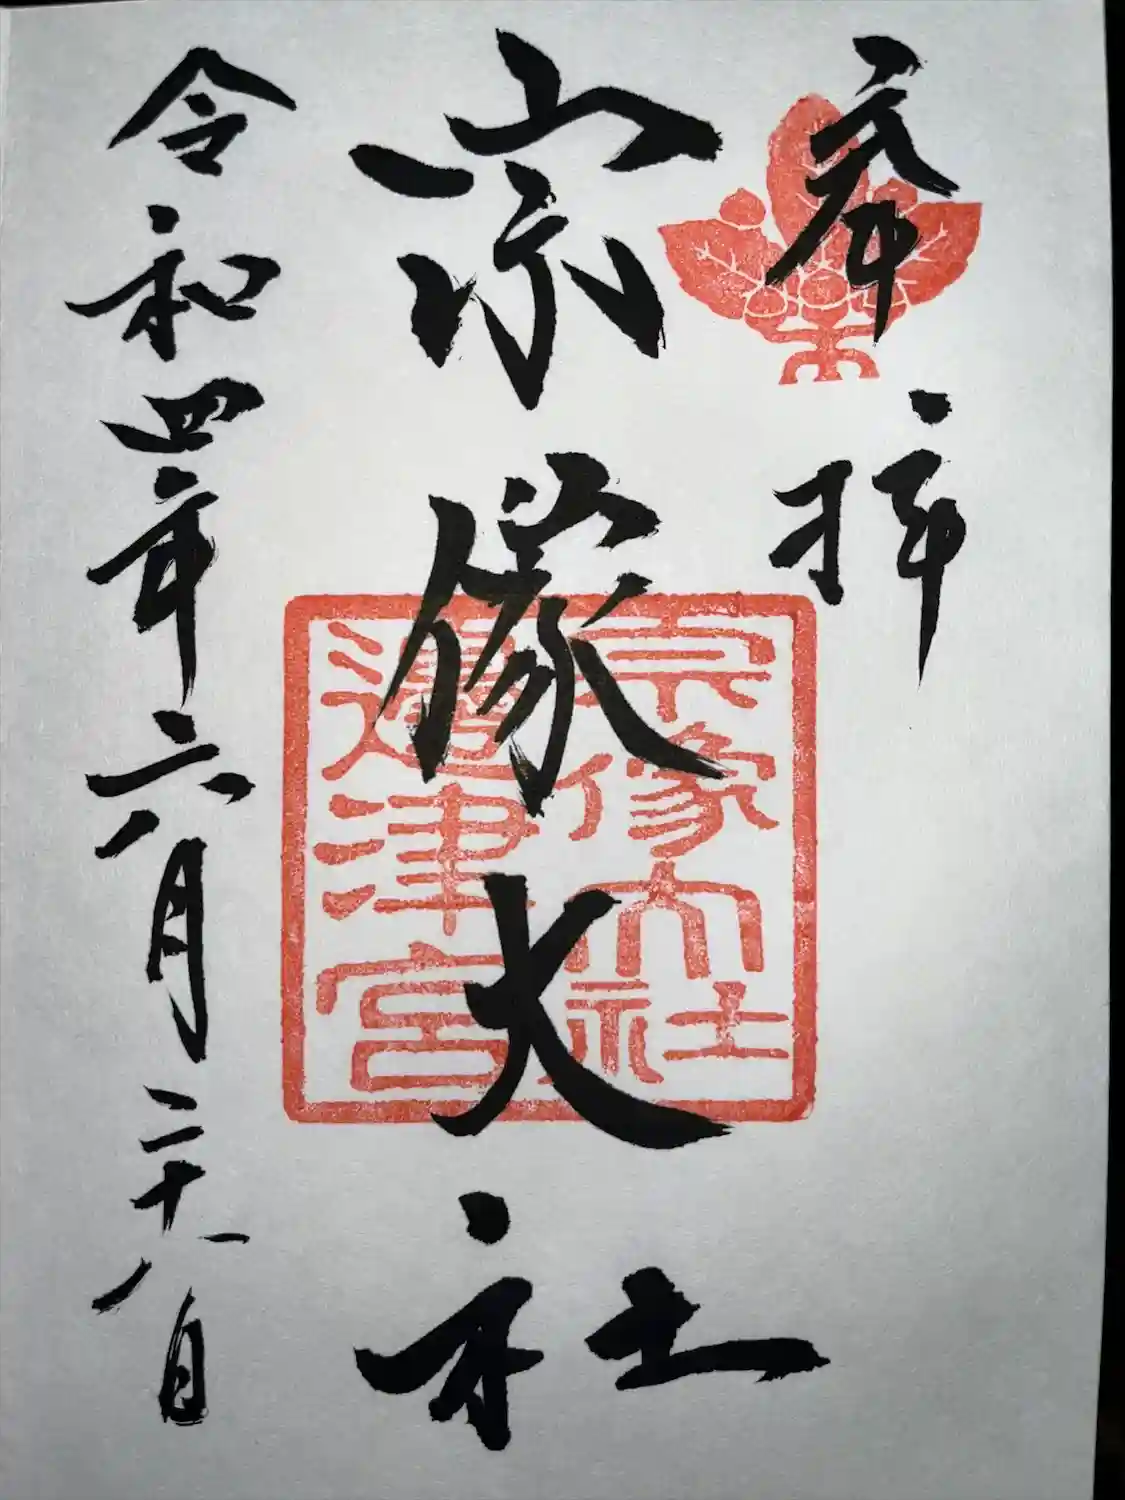 奉拝
宗像大社
令和四年六月二十八日
宗像大社
邊津宮